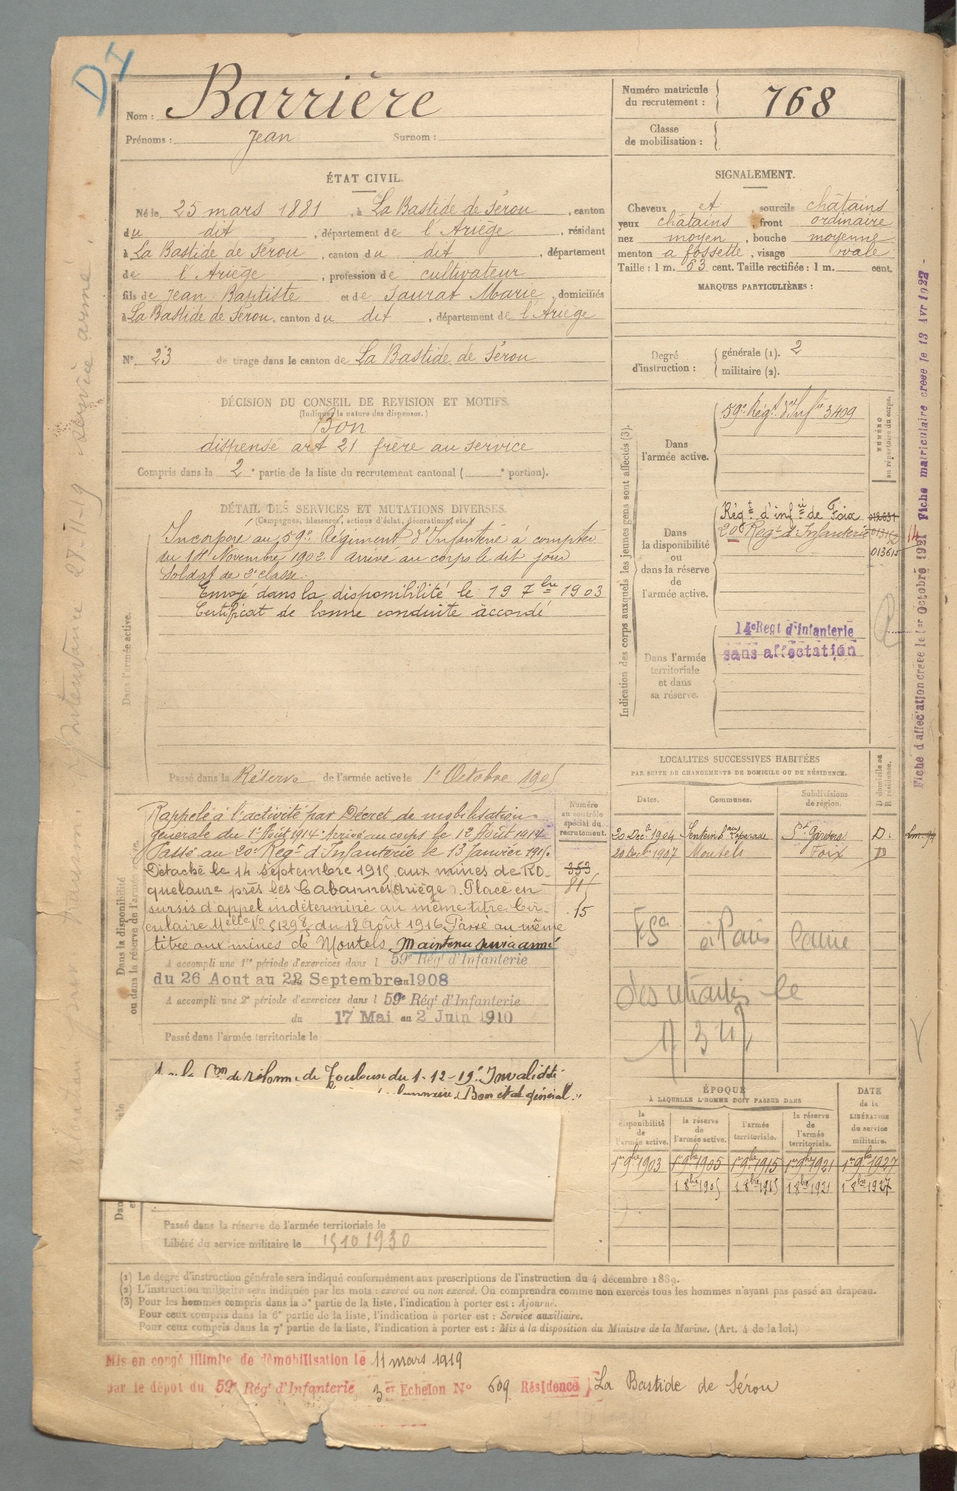 DI
Nom : Barrière
Prénoms : Jean Surnom :
ÉTAT CIVIL.
Né le 25 mars 1881, à La Bastide de Sérou, canton
du dit, département de l'Ariège, résidant
à La Bastide de Sérou, canton du dit, département
de l'Ariège, profession de cultivateur
fils de Jean Baptiste et de Saurat Marie, domiciliés
à La Bastide de Sérou, canton du dit, département de l'Ariège
N° 23 de tirage dans le canton de La Bastide de Sérou
DÉCISION DU CONSEIL DE REVISION ET MOTIFS.
(Indiquer la nature des dispenses.)
Bon
dispensé art 21 frère au service
Compris dans la 2e partie de la liste du recrutement cantonal ( e portion).
DÉTAIL DES SERVICES ET MUTATIONS DIVERSES.
(Campagnes, blessures, actions d'éclat, décorations, etc.)
Incorporé au 59e Régiment d'Infanterie à compter
du 1er Novembre 1902 arrivé au corps le dit jour
Soldat de 2e classe.
Envoyé dans la disponibilité le 19 7bre 1903
Certificat de bonne conduite accordé
Dans l'armée active.
Passé dans la Réserve de l'armée active le 1er Octobre 1905
Rappelé à l'activité par Décret de mobilisation
générale du 1er Août 1914. Arrivé au corps le 12 Août 1914.
Passé au 20e Régt d'Infanterie le 13 Janvier 1915.
Détaché le 14 septembre 1915 aux mines de Ro-
quelaure près les Cabannes (Ariège). Placé en
sursis d'appel indéterminé au même titre. Cir-
culaire Mlle No 51298 du 18 août 1916. Passé au même
titre aux mines de Montels. Maintenu service armé
A accompli une 1re période d'exercices dans le 59e Régt d'Infanterie
du 26 Aout au 22 Septembre 1908
A accompli une 2e période d'exercices dans le 59e Régt d'Infanterie
du 17 Mai au 2 Juin 1910
Passé dans l'armée territoriale le
Dans la disponibilité
ou dans la réserve de l'armée active.
Numéro
au contrôle
spécial du
recrutement.
353
817
15
de réforme de Toulouse du 1-12-19. Invalidité
Bon état général."
Passé dans la réserve de l'armée territoriale le
Libéré du service militaire le 15 10 1930
Numéro matricule
du recrutement : 768
Classe
de mobilisation :
SIGNALEMENT.
Cheveux et, sourcils châtains
yeux châtains, front ordinaire
nez moyen, bouche moyenne
menton à fossette, visage ovale
Taille : 1 m. 63 cent. Taille rectifiée : 1 m. cent.
MARQUES PARTICULIÈRES :
Degré
d'instruction :
générale (1). 2
militaire (2).
Indication des corps auxquels les jeunes gens sont affectés (3).
NUMÉRO
au répertoire du corps.
Dans
l'armée active.
59e Régt d'Infie 3409
Dans
la disponibilité
ou
dans la réserve
de
l'armée active.
Régt d'infie de Foix
20e Régt d'Infanterie
013615
14
Dans l'armée
territoriale
et dans
sa réserve.
14e Regt d'Infanterie
sans affectation
LOCALITÉS SUCCESSIVES HABITÉES
PAR SUITE DE CHANGEMENTS DE DOMICILE OU DE RÉSIDENCE.
Dates. Communes. Subdivisions de région. D domicile ou R résidence.
20 Déc 1904 St Girons D.
1907 Montels Foix D
à Paris
le
ÉPOQUE
À LAQUELLE L'HOMME DOIT PASSER DANS
DATE
de la
LIBÉRATION
du service
militaire.
la disponibilité de l'armée active.
la réserve de l'armée active.
l'armée territoriale.
la réserve de l'armée territoriale.
1er 9bre 1903 1er 9bre 1905 1er 9bre 1915 1er 9bre 1921 1er 9bre 1927
1 8bre 1905 1 8bre 1915 1 8bre 1921 1 8bre 1927
Fiche d'affectation créée le 1er Octobre 1921 Fiche matriculaire créée le 13 Avr 1927
(1) Le degré d'instruction générale sera indiqué conformément aux prescriptions de l'instruction du 4 décembre 1889.
(2) L'instruction militaire sera indiquée par les mots : exercé ou non exercé. On comprendra comme non exercés tous les hommes n'ayant pas passé au drapeau.
(3) Pour les hommes compris dans la 5e partie de la liste, l'indication à porter est : Ajourné.
Pour ceux compris dans la 6e partie de la liste, l'indication à porter est : Service auxiliaire.
Pour ceux compris dans la 7e partie de la liste, l'indication à porter est : Mis à la disposition du Ministre de la Marine. (Art. 4 de la loi.)
Mis en congé illimité de démobilisation le 11 mars 1919
par le dépot du 59e Régt d'Infanterie 3er Echelon N° 609 Résidence La Bastide de Sérou